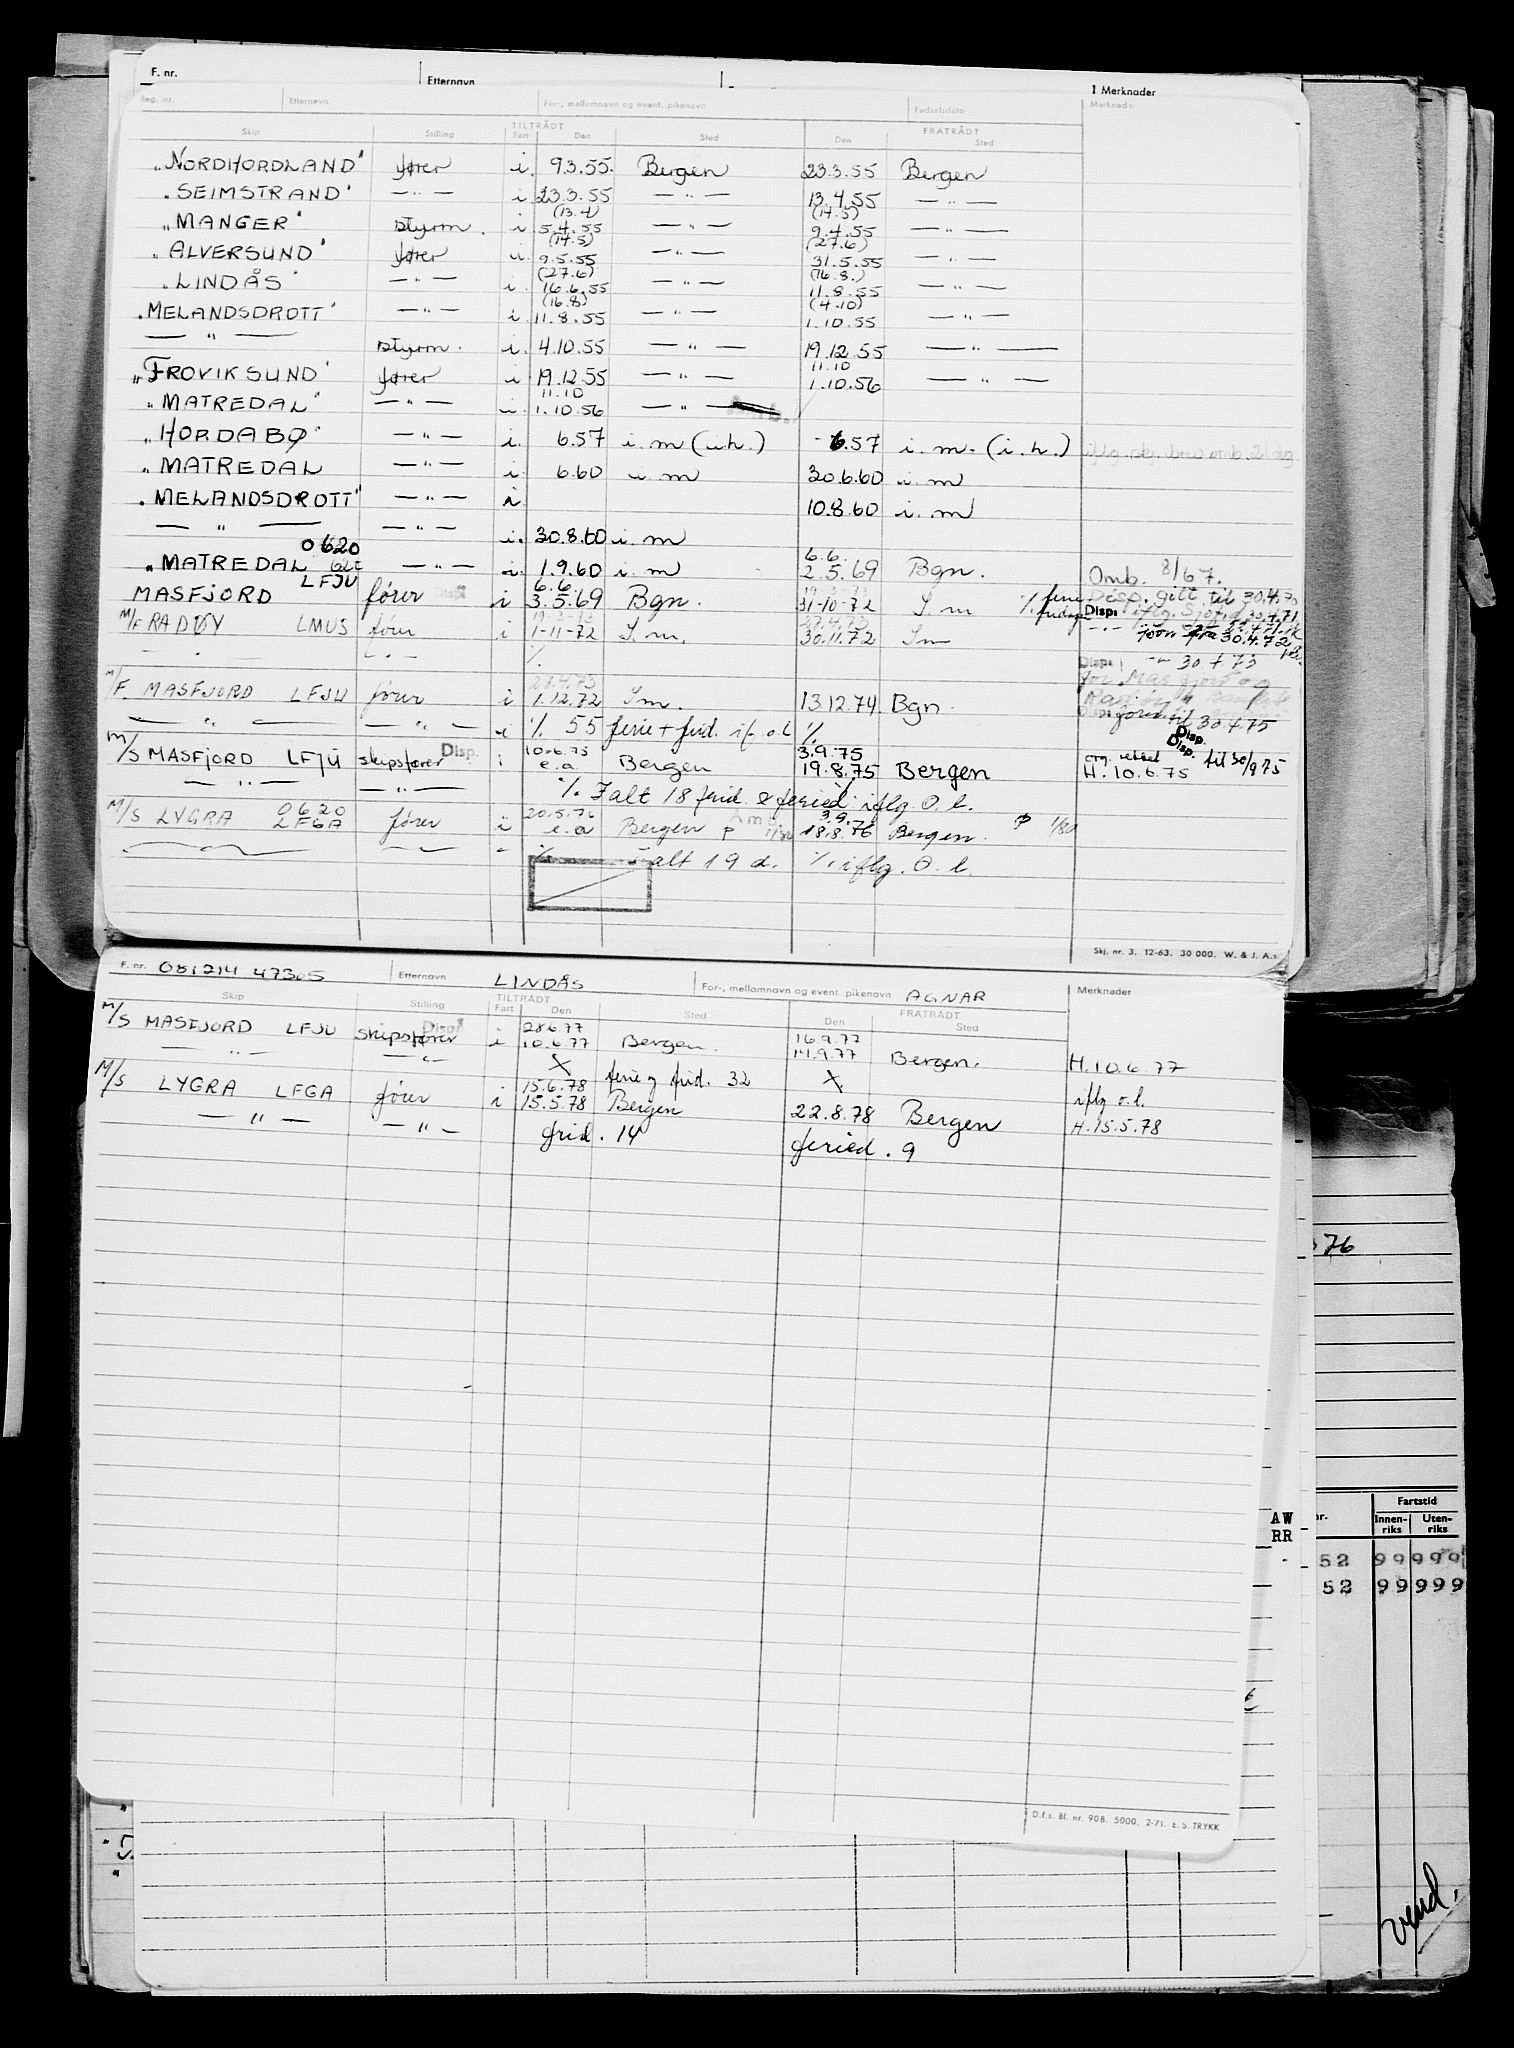 F. nr. Etternavn Merknader
Reg. nr. Etternavn For-, mellomnavn og event. pikenavn Fødselsdato Merknader
Skip Stilling TILTRÅDT Fart Den Sted FRATRÅDT Den Sted
"NORDHORDLAND" fører i. 9.3.55. Bergen 23.3.55 Bergen
"SEIMSTRAND" —"— i 23.3.55 —"— 13.4.55 —"—
(13.4) (14.5)
"MANGER" styrm. i 5.4.55 —"— 9.4.55 —"—
(14.5) (27.6)
"ALVERSUND" fører i. 9.5.55 —"— 31.5.55 —"—
(27.6) (16.8.)
"LINDÅS" —"— i. 16.6.55 —"— 11.8.55 —"—
(16.8) (4.10)
"MELANDSDROTT" —"— i. 11.8.55 —"— 1.10.55 —"—
—"— styrm. i. 4.10.55 —"— 19.12.55 —"—
"FROVIKSUND" fører i 19.12.55 —"— 11.10 1.10.56 —"—
11.10
"MATREDAL" —"— i. 1.10.56 —"—
"HORDABØ" —"— i. 6.57 i.m (i.h.) -6.57 i.m. (i.h.)
"MATREDAL —"— i. 6.60 i.m 30.6.60 i.m
"MELANDSDROTT" —"— i. 10.8.60 i.m
—"— —"— i. 30.8.60 i.m
0620 6.6.
"MATREDAL —"— i. 1.9.60 i.m 2.5.69 Bgn. Omb. 8/67.
LFJU 6.6.
MASFJORD fører Disp i 3.5.69 Bgn. 31-10-72 I.m % ferie Disp. gitt til 30.4.70
19-3-73 27.4.73
M/F RADØY LMUS fører i 1-11-72 I.m. 30.11.72 Im
—"— 30.4.73
27.4.73
M/F. MASFJORD LFJU fører i 1.12.72 I.m. 13.12.74 Bgn.
—"— —"— i % 55 ferie + frid. if. o.l %. til 30.4.75
Disp.
Disp.
10.6.75 3.9.75
M/S MASFJORD LFJU skipsfører Disp. i e.a. Bergen 19.8.75 Bergen H. 10.6.75 til 30/9 75
—"— —"— %. Ialt 18 frid & feried. iflg. O.l.
0620 20.5.76 3.9.76
M/S LYGRA LFGA fører i e.a Bergen 18.8.76 Bergen. 1/80
Ialt 19 d. %. iflg. O.l.
Skj. nr. 3. 12-63. 30 000. W. & J. A.s
F. nr. 081214 47305 Etternavn LINDÅS For-, mellomnavn og event. pikenavn AGNAR Merknader
Skip Stilling TILTRÅDT Fart Den Sted FRATRÅDT Den Sted
28.6.77 16.9.77
M/S MASFJORD LFJU skipsfører Disp. i 10.6.77 Bergen. 14.9.77 Bergen. H. 10.6.77
—"— —"— X ferie og frid. 32 X. iflg o.l.
15.6.78
M/S LYGRA LFGA fører i 15.5.78 Bergen 22.8.78 Bergen H. 15.5.78
—"— —"— frid. 14 feried. 9
76
D.f.s. Bl. nr. 90B. 5000. 2-71. E.S. TRYKK
AW
RR
nr. Fartstid
Innenriks Utenriks
52 99 999
52 99 999
vend.